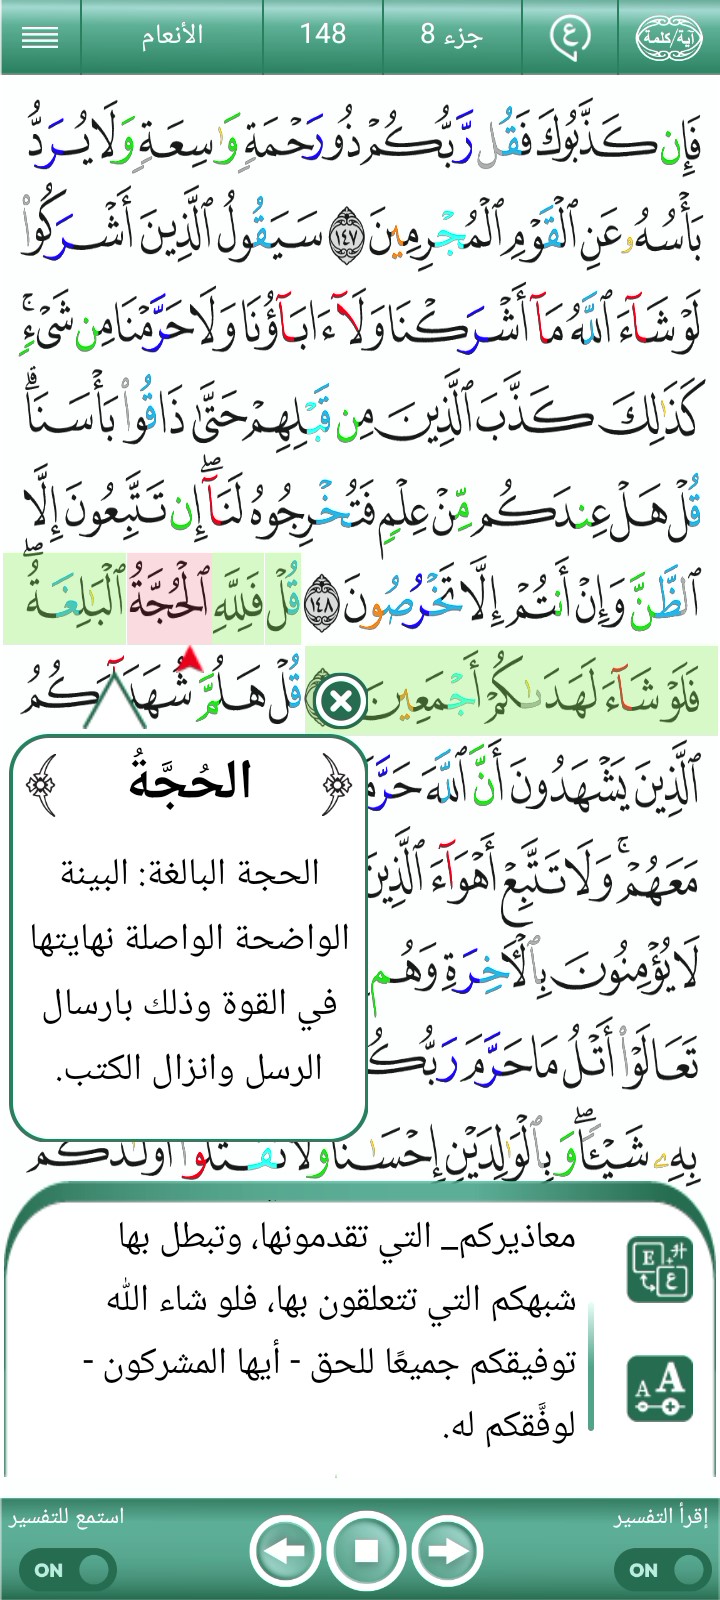 آية/كلمة
ع
جزء 8
148
الأنعام
فَإِن كَذَّبُوكَ فَقُل رَّبُّكُمْ ذُو رَحْمَةٍ وَٰسِعَةٍ وَلَا يُرَدُّ
بَأْسُهُۥ عَنِ ٱلْقَوْمِ ٱلْمُجْرِمِينَ ١٤٧ سَيَقُولُ ٱلَّذِينَ أَشْرَكُوا۟
لَوْ شَآءَ ٱللَّهُ مَآ أَشْرَكْنَا وَلَآ ءَابَآؤُنَا وَلَا حَرَّمْنَا مِن شَىْءٍ ۚ
كَذَٰلِكَ كَذَّبَ ٱلَّذِينَ مِن قَبْلِهِمْ حَتَّىٰ ذَاقُوا۟ بَأْسَنَا ۗ
قُلْ هَلْ عِندَكُم مِّنْ عِلْمٍ فَتُخْرِجُوهُ لَنَآ ۖ إِن تَتَّبِعُونَ إِلَّا
ٱلظَّنَّ وَإِنْ أَنتُمْ إِلَّا تَخْرُصُونَ ١٤٨ قُلْ فَلِلَّهِ ٱلْحُجَّةُ ٱلْبَٰلِغَةُ ۖ
فَلَوْ شَآءَ لَهَدَىٰكُمْ أَجْمَعِينَ قُلْ هَلُمَّ شُهَدَآءَكُمُ
ٱلَّذِينَ يَشْهَدُونَ أَنَّ ٱللَّهَ
مَعَهُمْ ۚ وَلَا تَتَّبِعْ أَهْوَآءَ ٱلَّذِينَ
لَا يُؤْمِنُونَ بِٱلْءَاخِرَةِ وَهُم
تَعَالَوْا۟ أَتْلُ مَا حَرَّمَ
بِهِۦ شَيْـًٔا ۖ وَبِٱلْوَٰلِدَيْنِ إِحْسَٰنًا وَلَا تَقْتُلُوٓا۟ أَوْلَٰدَكُم
﴿ الحُجَّةُ ﴾
الحجة البالغة: البينة
الواضحة الواصلة نهايتها
في القوة وذلك بارسال
الرسل وانزال الكتب.
معاذيركم_ التي تقدمونها، وتبطل بها
شبهكم التي تتعلقون بها، فلو شاء الله
توفيقكم جميعًا للحق - أيها المشركون -
لوفَّقكم له.
إقرأ التفسير
استمع للتفسير
ON
ON